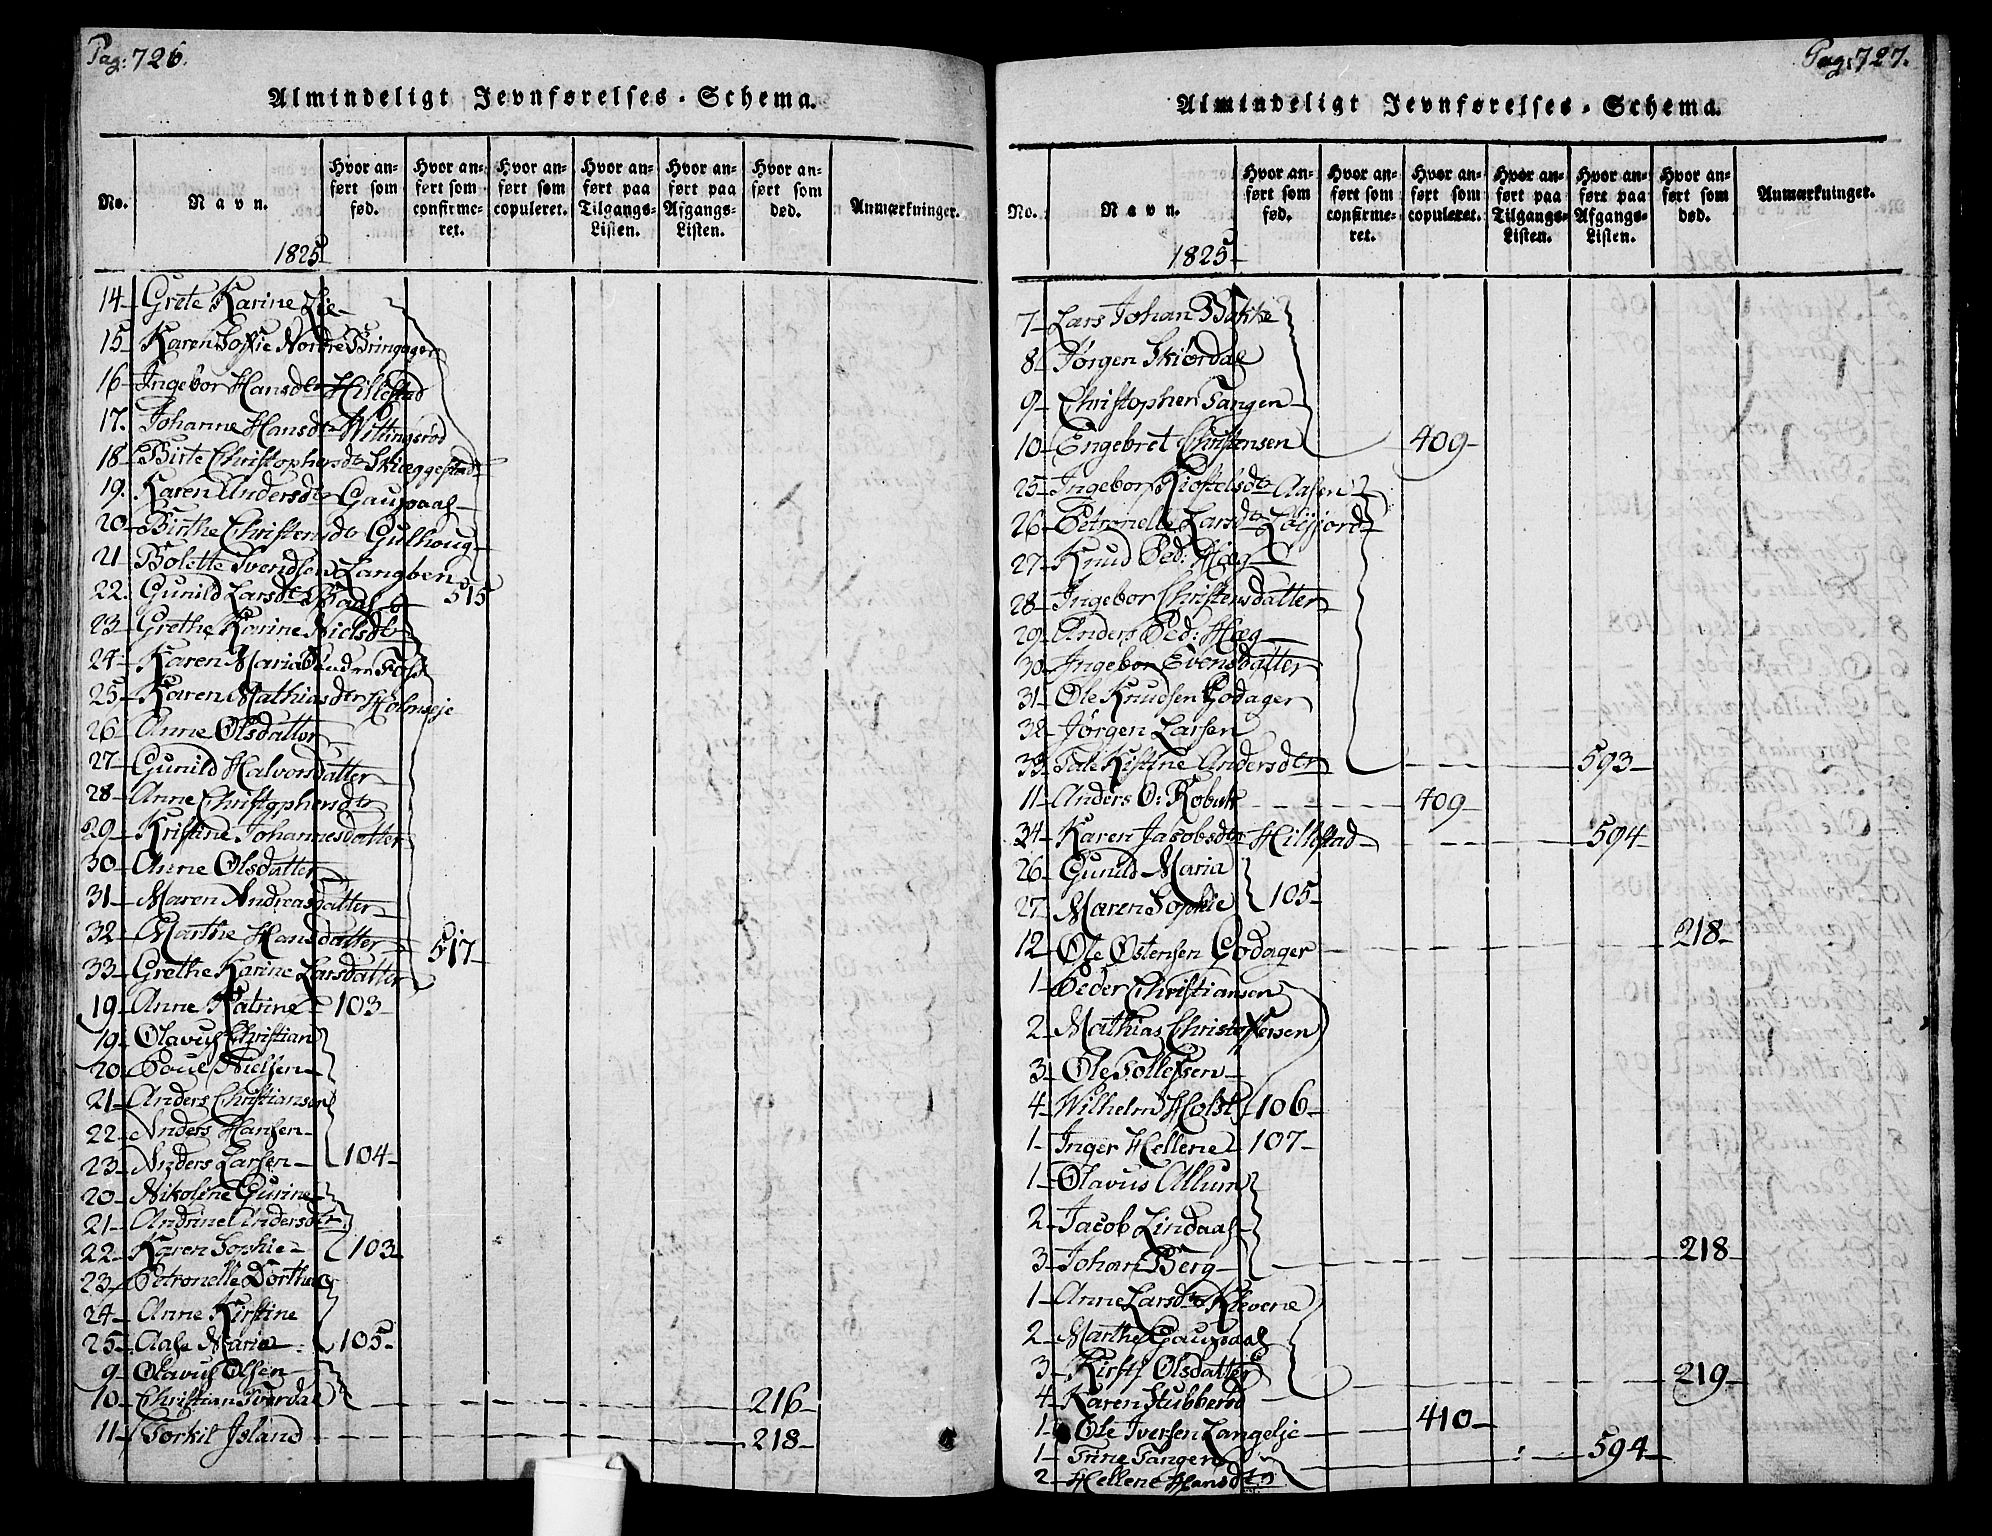 Pag: 726.
Almindeligt Jevnførelses-Schema.
No.
Navn.
Hvor an-
ført som
fød.
Hvor an-
ført som
confirme-
ret.
Hvor an-
ført som
copuleret.
Hvor an-
ført paa
Tilgangs-
Listen.
Hvor an-
ført paa
Afgangs-
Listen.
Hvor an-
ført som
død.
Anmærkninger.
1825
14 Grete Karine Lie
15 Karen Sofie Nordre Bringager
16 Ingebor Hansdtr Hillestad
17. Johanne Hansdtr Wittingsrød
18 Birte Christophersdtr Skieggestad
19. Karen Andersdtr Gausdaal
20 Birthe Christensdtr Gulhoug
21 Bolette Svendsen Langben
22. Gunild Larsdtr 515
23 Grethe Karine Nielsdtr
24 Karen Maria
25 Karen Mathiasdtr Holmseje
26 Anne Olsdatter
27 Gunild Halvorsdatter
28 Anne Christophersdtr
29 Kristine Johannesdatter
30 Anne Olsdatter
31 Maren Andreasdatter
32 Marthe Hansdatter 517
33 Grethe Karine Larsdatter
19 Anne Katrine 103
19 Olavus Christian
20 Poul Nielsen
21 Anders Christiansen
22 Anders Hansen
23 Anders Larsen 104
20 Nikoline Gurine
21 Andrine Andersdtr
22 Karen Sophie 103
23 Petronelle Dorthea
24 Anne Kirstine
25 Aase Maria 105
9 Olavus Olsen
10 Christian Sverdal 216
11 Torkil Island 218
Pag: 727.
Almindeligt Jevnførelses-Schema.
No.
Navn.
Hvor an-
ført som
fød.
Hvor an-
ført som
confirme-
ret.
Hvor an-
ført som
copuleret.
Hvor an-
ført paa
Tilgangs-
Listen.
Hvor an-
ført paa
Afgangs-
Listen.
Hvor an-
ført som
død.
Anmærkninger.
1825
7 Lars Johan Bakke
8 Jørgen Skiørdal
9 Christopher Tangen
10 Engebret Christensen 409
25 Ingebor Kiostelsdtr Aasen
26 Petronelle Larsdtr Løefjord
27 Knud Ped: Hæg
28 Ingebor Christensdatter
29 Anders Ped: Hæg
30 Ingebor Evensdatter
31 Ole Knudsen Godager
32 Jørgen Larsen
33 Tale Kistine Andersdtr 593
11 Anders O: 409
34 Karen Jacobsdtr Hillestad 594
26 Gunild Maria
27 Maren Sophie 105
12 Ole Ostensen Godager 218
1 Peder Christiansen
2 Mathias Christoffersen
3 Ole Tollefsen
4 Wilhelm Holst 106
1 Inger Hellene 107
1 Olavus Allum
2 Jacob Lindaas
3 Johan Berg 218
1 Anne Larsdtr Klevene
2 Marthe Gausdaal
3 Kirsti Olsdatter 219
4 Karen Stubberød
1 Ole Iversen Langelje 410
1 Trine Tangen 594
2 Hellene Hansdtr